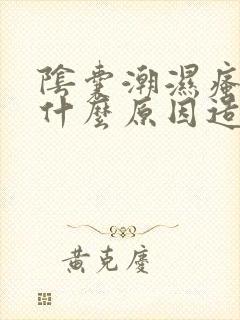 陰囊潮濕瘙
什麼原因造
黃克慶